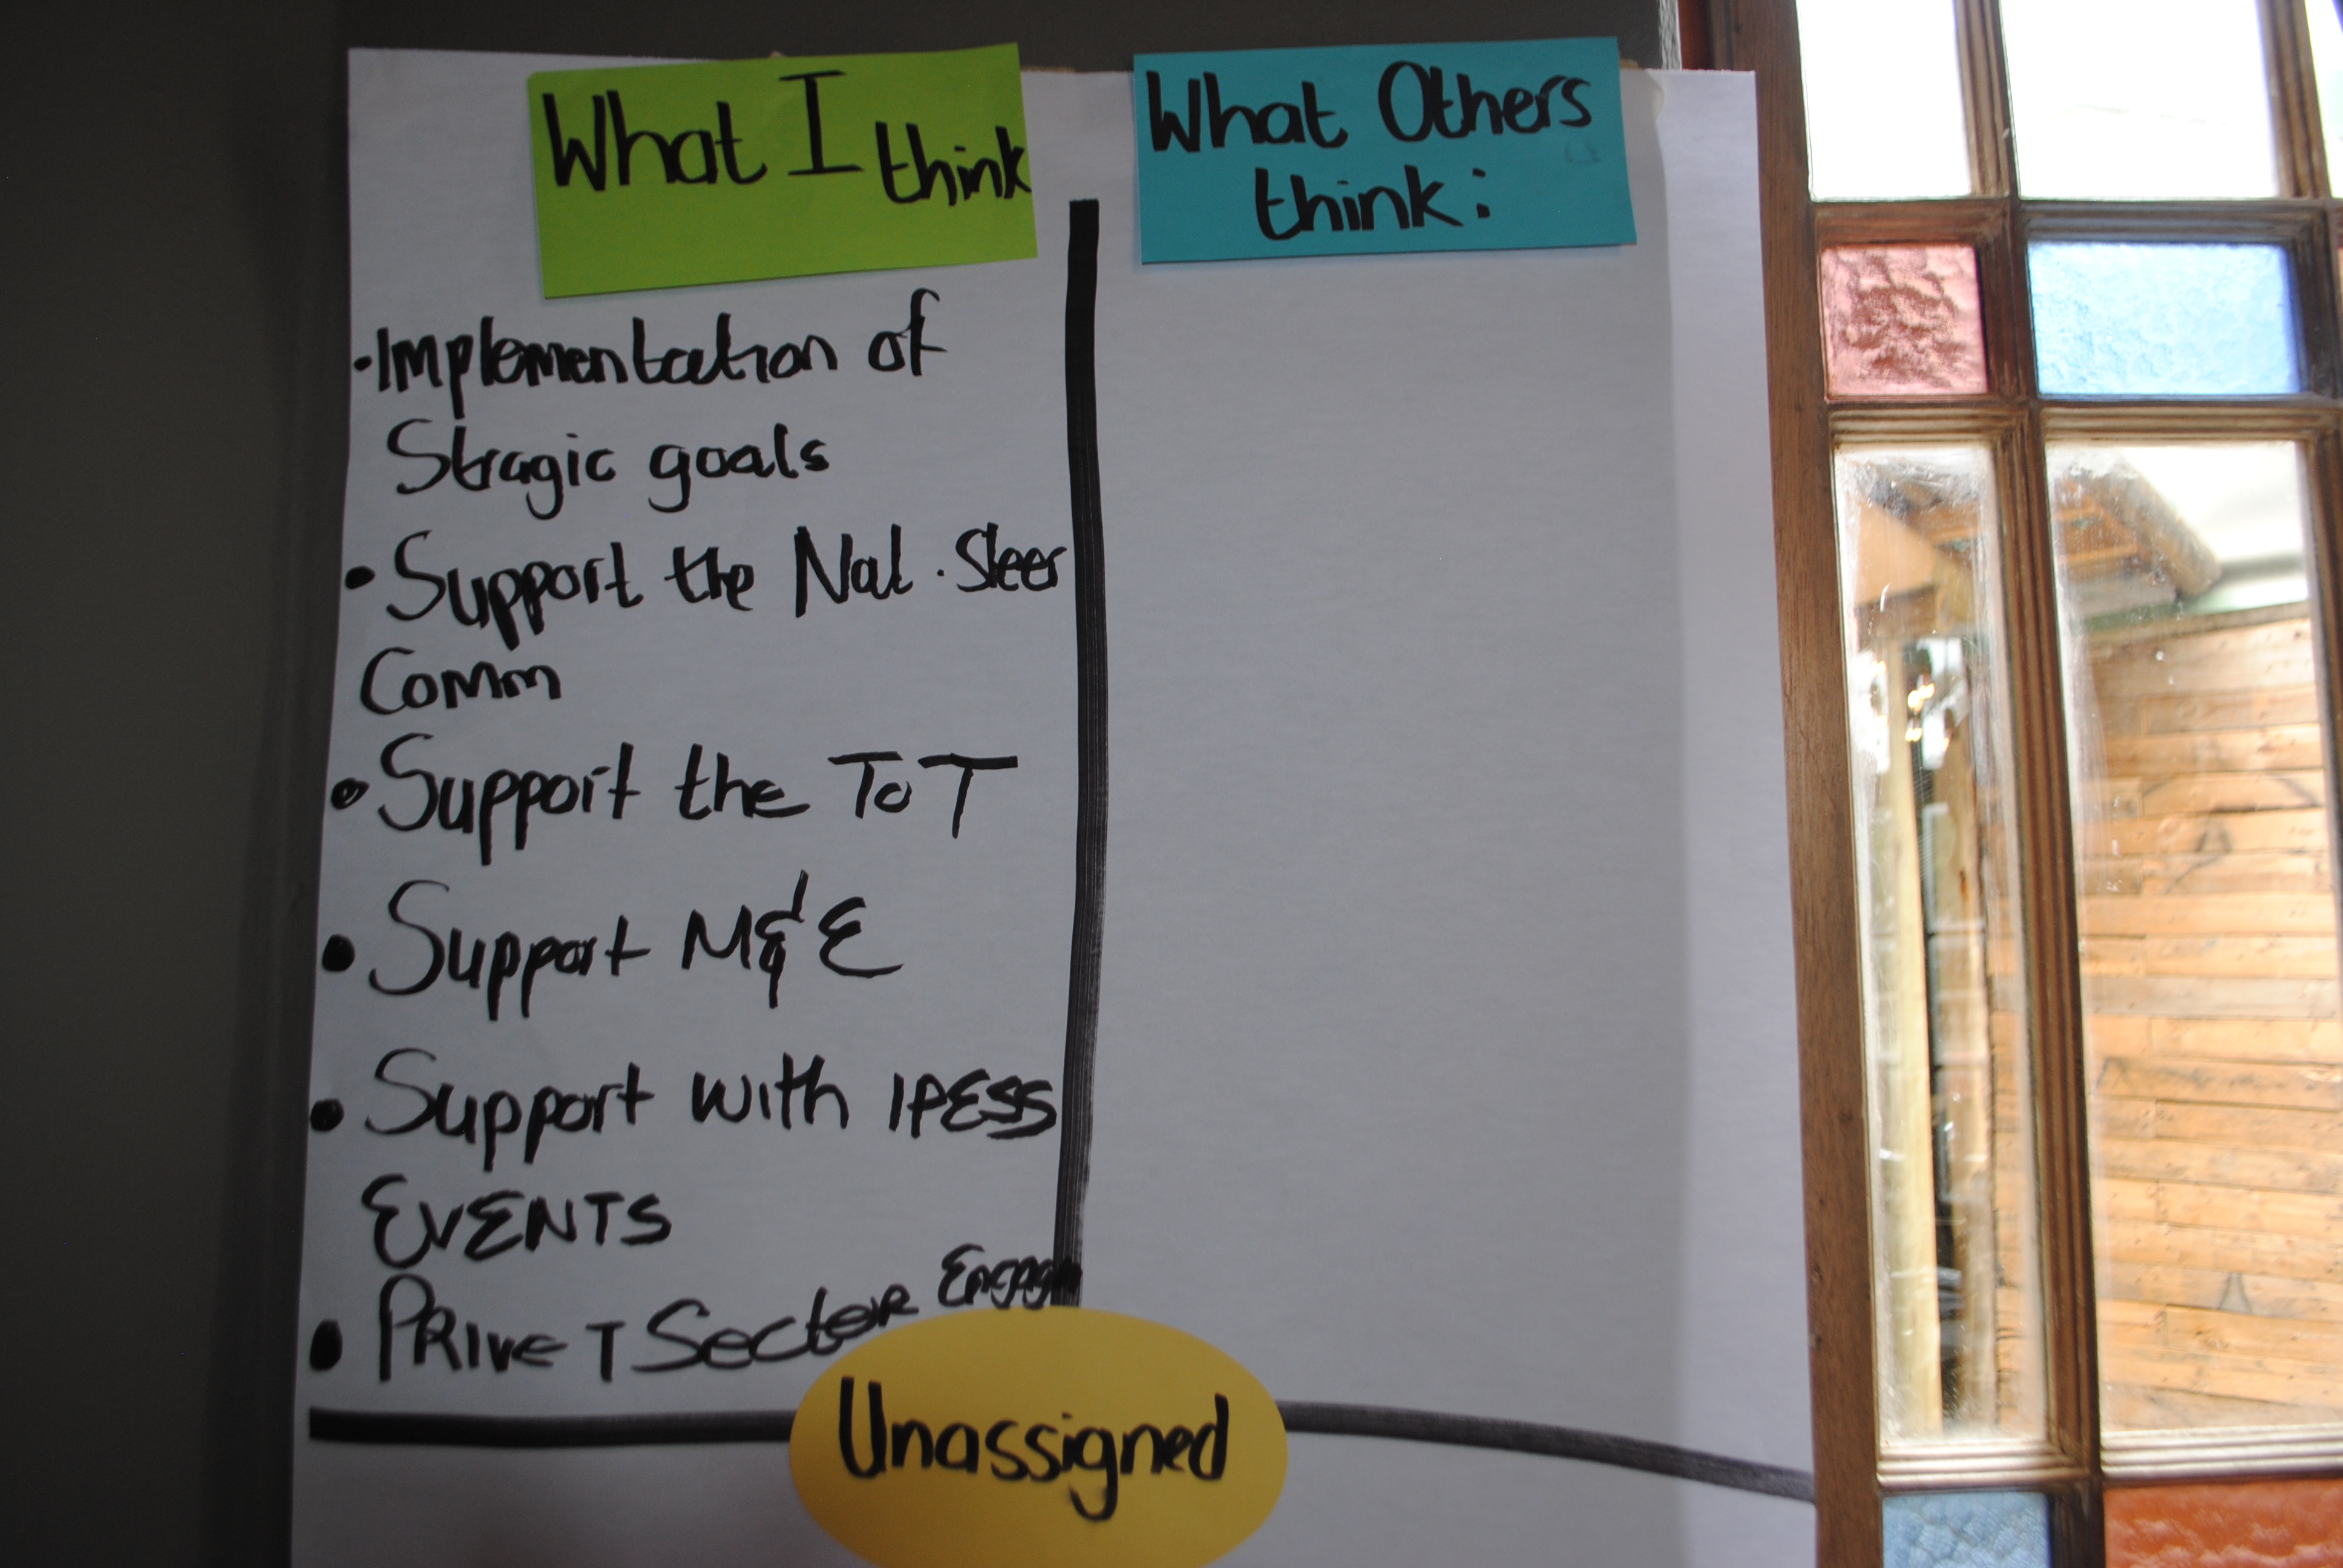 What I think
What Others
think:
·Implementation of
Stragic goals
• Support the Nat. Steer
Comm
• Support the ToT
• Support M&E
• Support with IPESS
EVENTS
• PRIVeT Sector Engag
Unassigned